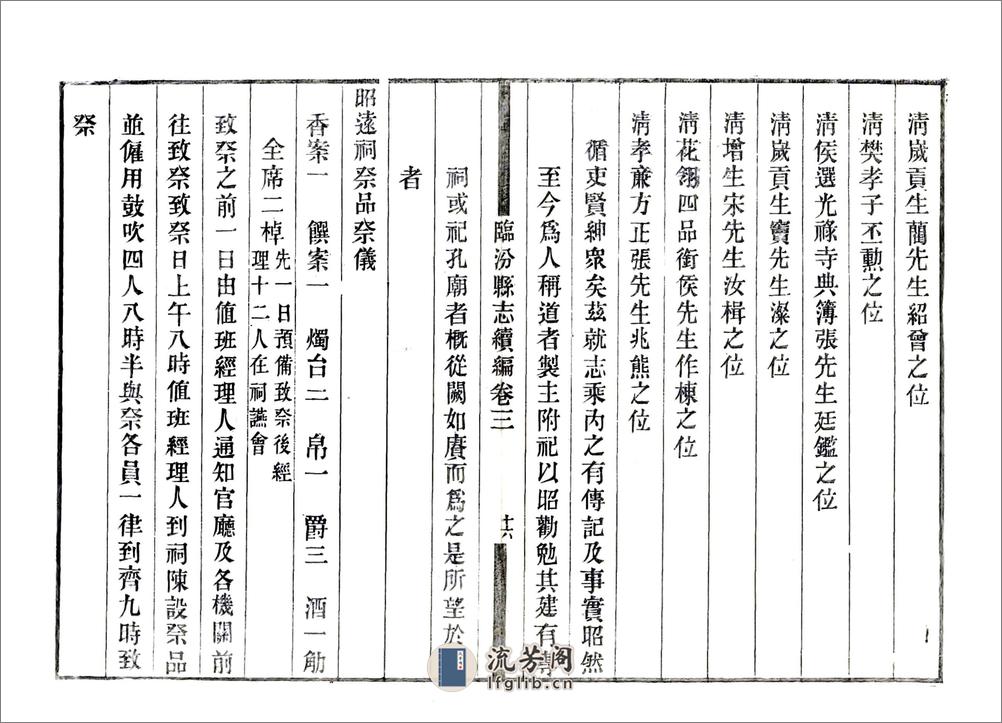 清歲貢生藺先生紹曾之位
清樊孝子丕勲之位
清侯選光祿寺典簿張先生廷鑑之位
清歲貢生竇先生澯之位
清增生宋先生汝楫之位
清花翎四品銜侯先生作棟之位
清孝亷方正張先生兆熊之位
循吏賢紳衆矣兹就志乘內之有傳記及事實昭然
至今爲人稱道者製主附祀以昭勸勉其建有專
祠或祀孔廟者概從闕如賡而爲之是所望於
者
臨汾縣志續編卷三
十六
昭遠祠祭品祭儀
香案一 饌案一 燭台二 帛一 爵三 酒一觔
全席二棹先一日預備致祭後經
理十二人在祠讌會
致祭之前一日由值班經理人通知官廳及各機關前
往致祭致祭日上午八時值班經理人到祠陳設祭品
並僱用鼓吹四人八時半與祭各員一律到齊九時致
祭
流芳阁
lfglib.cn